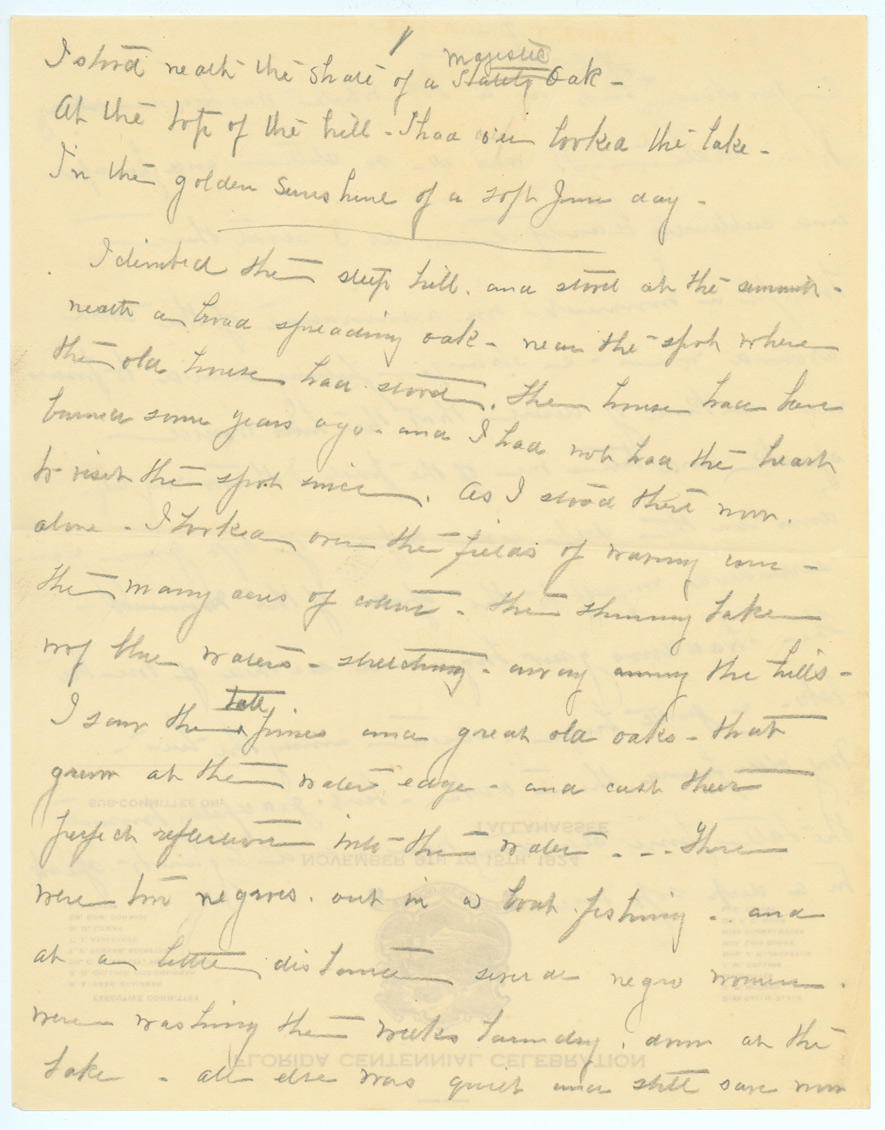 I stood neath the shade of a majestic Stately Oak -
At the top of the hill - I had over looked the lake -
In the golden sunshine of a soft June day -
I climbed the steep hill. and stood at the summit -
neath a broad spreading oak - near the spot where
the old house had stood. the house had been
burned some years ago - and I had not had the heart
to visit the spot since. As I stood there now.
alone - I looked over the fields of waving corn -
the many acres of cotton - the shimmering lake
of blue waters - stretching - away among the hills -
I saw the tall pines and great old oaks - that
grew at the water's edge - and cast their
perfect reflection into the water - - - There
were two negroes. out in a boat fishing - and
at a little distance several negro women.
were washing the weeks laundry. down at the
lake - all else was quiet and still save now
SUB-COMMITTEE ON
TALLAHASSEE
NOVEMBER 9TH TO 15TH, 1924
EXECUTIVE COMMITTEE
FLORIDA CENTENNIAL CELEBRATION